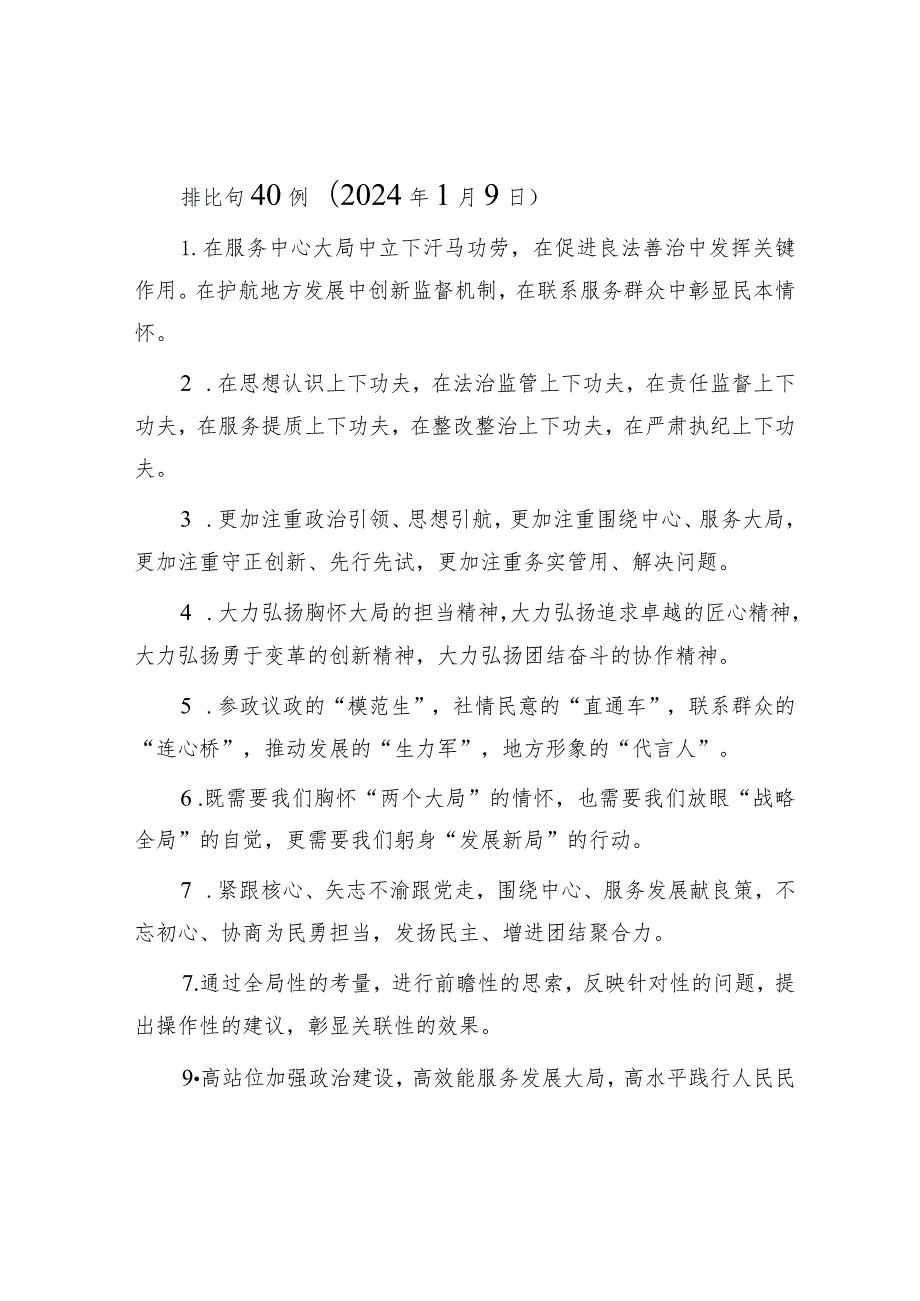 排比句 40 例（2024 年 1 月 9 日）
1. 在服务中心大局中立下汗马功劳，在促进良法善治中发挥关键
作用。在护航地方发展中创新监督机制，在联系服务群众中彰显民本情
怀。
2 . 在思想认识上下功夫，在法治监管上下功夫，在责任监督上下
功夫，在服务提质上下功夫，在整改整治上下功夫，在严肃执纪上下功
夫。
3 . 更加注重政治引领、思想引航，更加注重围绕中心、服务大局，
更加注重守正创新、先行先试，更加注重务实管用、解决问题。
4 . 大力弘扬胸怀大局的担当精神，大力弘扬追求卓越的匠心精神，
大力弘扬勇于变革的创新精神，大力弘扬团结奋斗的协作精神。
5 . 参政议政的“模范生”，社情民意的“直通车”，联系群众的
“连心桥”，推动发展的“生力军”，地方形象的“代言人”。
6.既需要我们胸怀“两个大局”的情怀，也需要我们放眼“战略
全局”的自觉，更需要我们躬身“发展新局”的行动。
7 . 紧跟核心、矢志不渝跟党走，围绕中心、服务发展献良策，不
忘初心、协商为民勇担当，发扬民主、增进团结聚合力。
7.通过全局性的考量，进行前瞻性的思索，反映针对性的问题，提
出操作性的建议，彰显关联性的效果。
9•高站位加强政治建设，高效能服务发展大局，高水平践行人民民